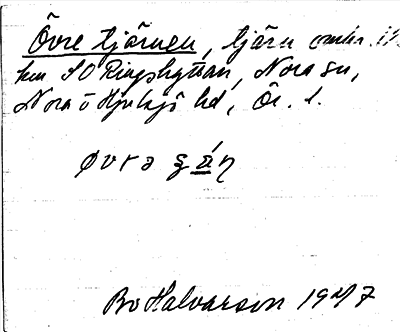 Övre tjärnen, tjärn omkr.
km SO Ringshyttan, Nora sn,
Nora o Hjulsjö hd, Ör. l.
Bo Halvarson 1947